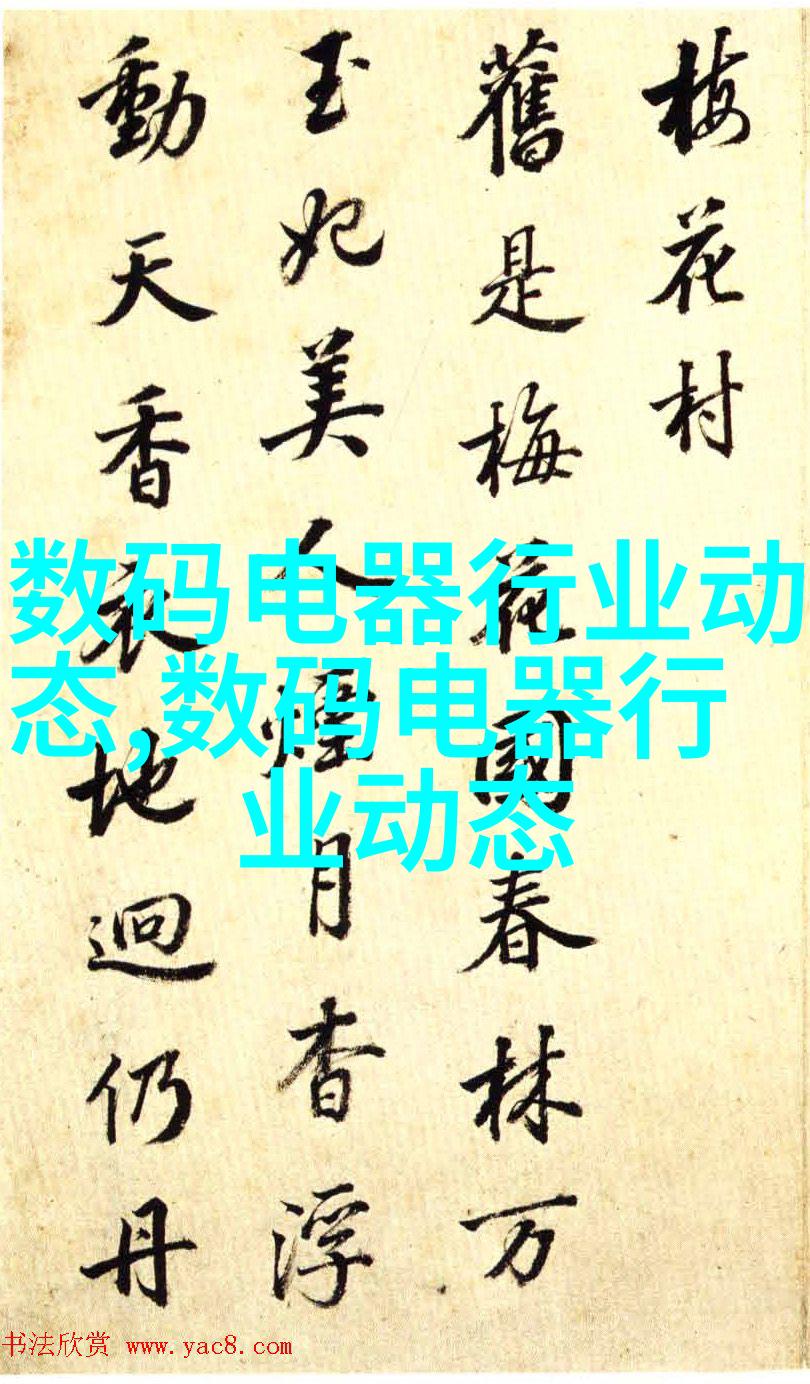 梅花村
舊是梅花國春林万
玉妃美人煙月杳浮
動天香地迥仍丹
数码电器行业动
态,数码电器行
业动态
书法欣赏 www.yac8.com